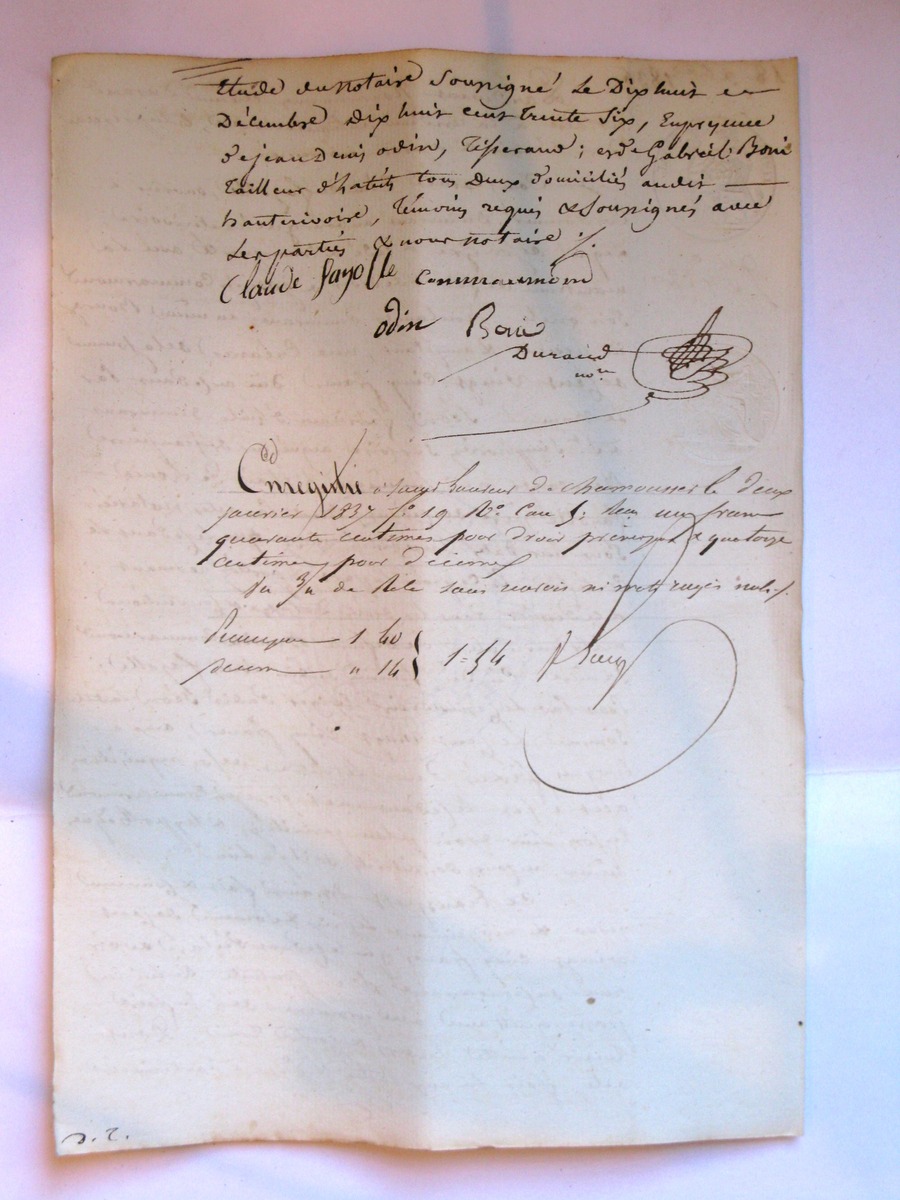 Etude du notaire soussigné le Dix huit
Décembre dix huit cent trente six, En présence
de jean Denis odin, Tisserand; et de Gabriël Boni
tailleur d'habits tous deux domiciliés audit
hauterivoire, témoins requis & soussignés avec
les parties & nous notaire ./.
Claude fayolle Commarmond
odin Boni
Durand
nore
Enregistré à saint Laurent de chamousset le deux
janvier 1837 fo 19 Ro Case 5; Reçu un franc
quarante centimes pour droit & quatorze
centimes pour décime
de Rôle sans renvois ni mots rayés nuls ./.
1 40
décime " 14 } 1=54
D. T.